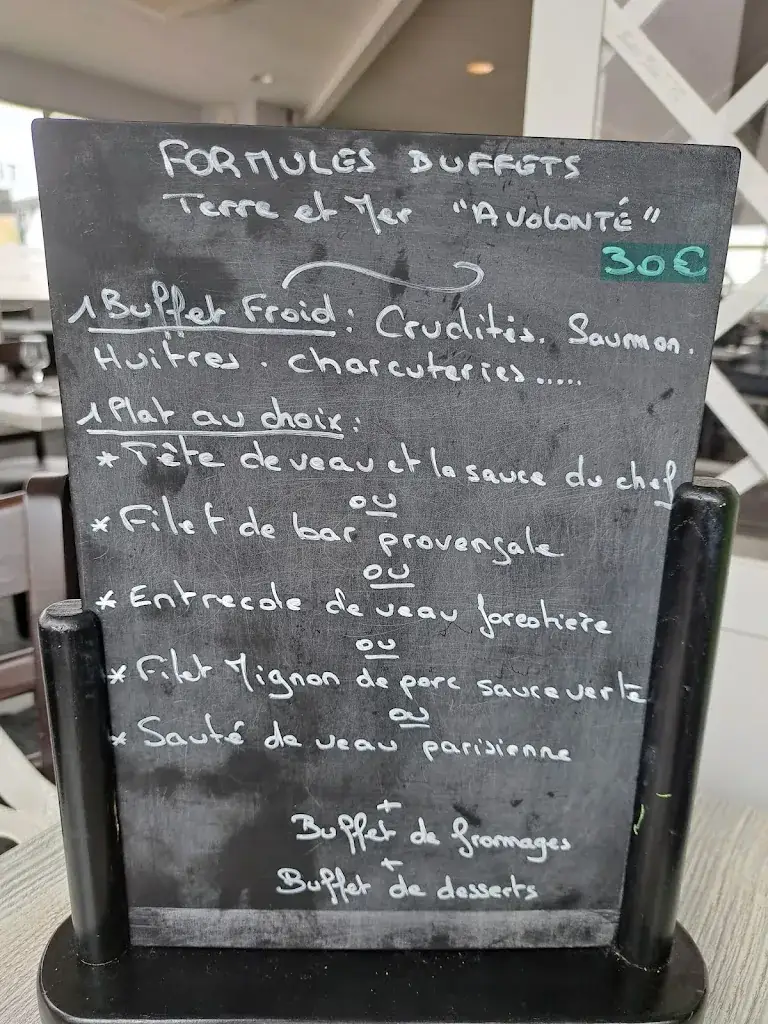 FORMULES BUFFETS
Terre et Mer "A VOLONTÉ"
30€
1 Buffet Froid : Crudités. Saumon.
Huîtres. charcuteries.....
1 Plat au choix :
* Tête de veau et la sauce du chef
ou
* Filet de bar provençale
ou
* Entrecote de veau forestière
ou
* Filet Mignon de porc sauce verte
ou
* Sauté de veau parisienne
+
Buffet de fromages
+
Buffet de desserts